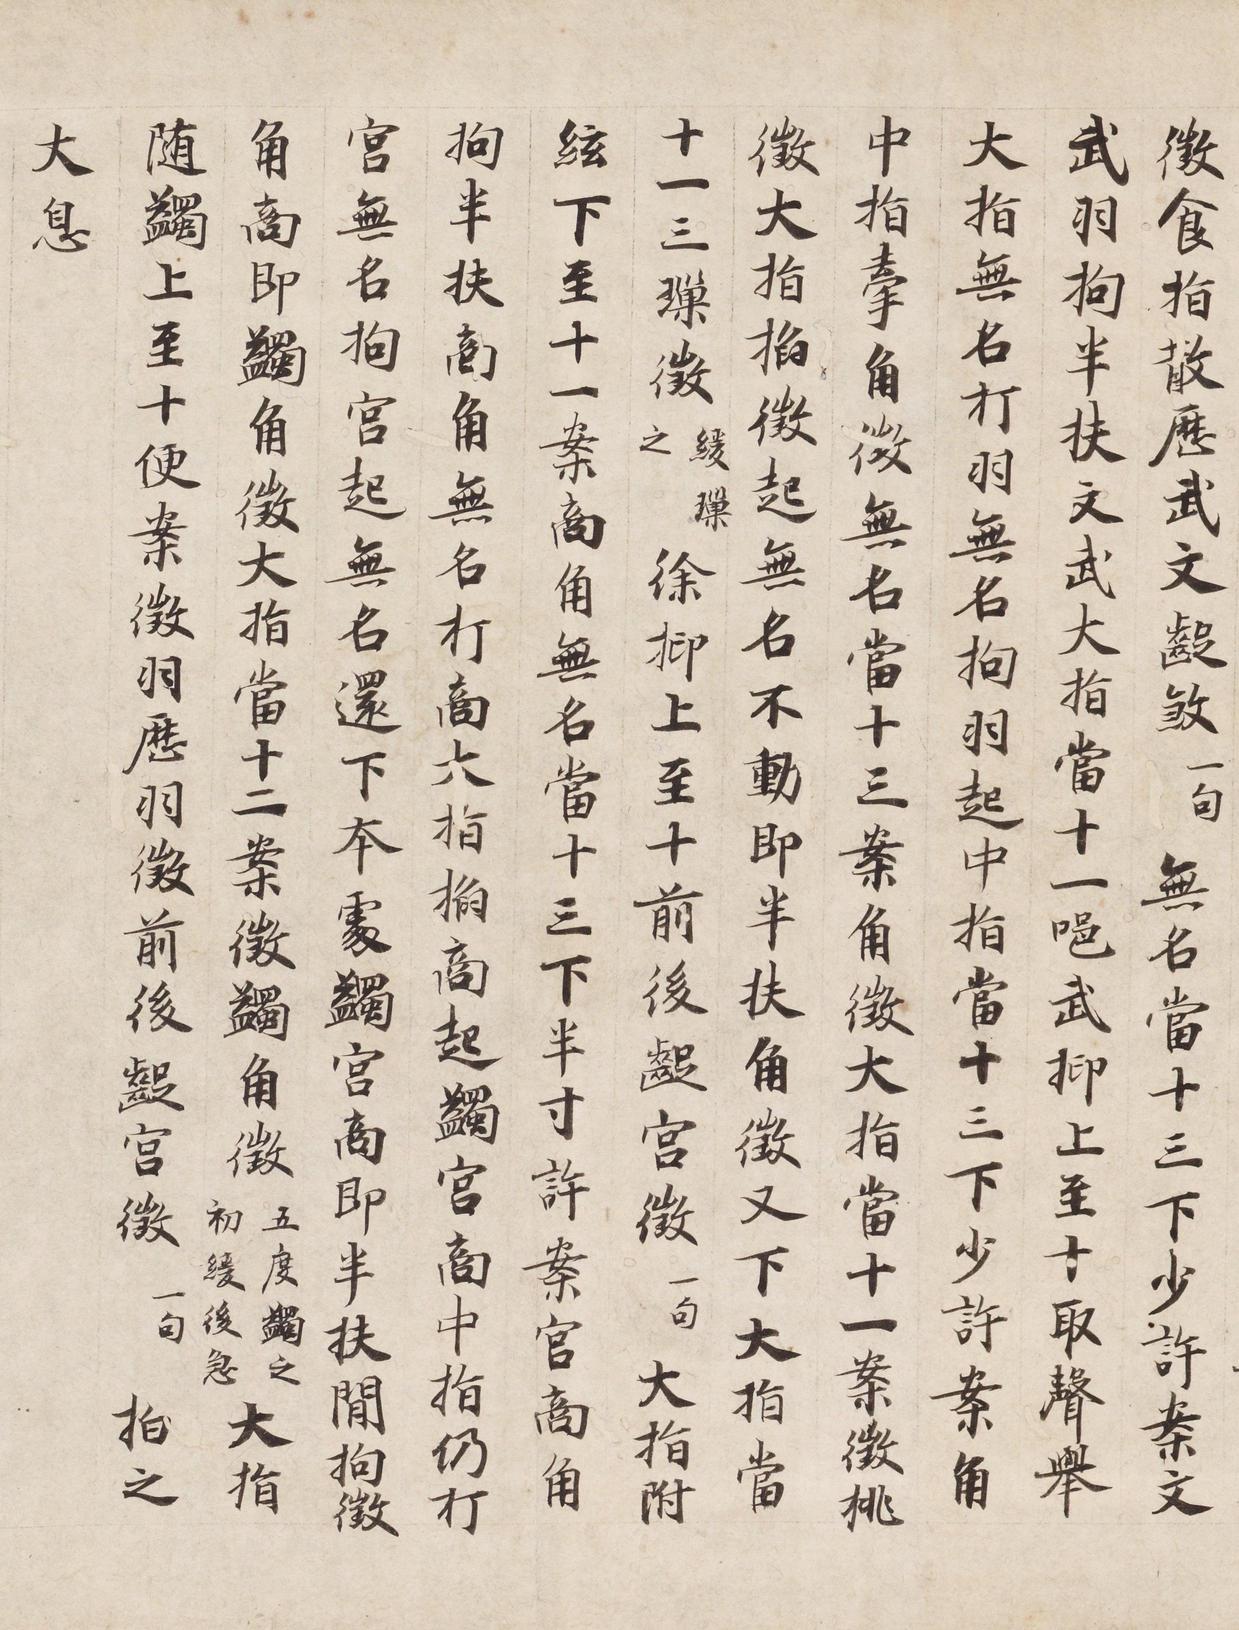 徵食指散歷武文齪煞一句無名當十三下少許案文
武羽拘半扶文武大指當十一挹武抑上至十取聲舉
大指無名打羽無名拘羽起中指當十三下少許案角
中指牽角徵無名當十三案角徵大指當十一案徵挑
徵大指掐徵起無名不動即半扶角徵又下大指當
十一三㻯徵緩㻯之徐抑上至十前後齪宮徵一句大指附
絃下至十一案商角無名當十三下半寸許案宮商角
拘半扶商角無名打商大指掐商起蠲宮商中指仍打
宮無名拘宮起無名還下本處蠲宮商即半扶閒拘徵
角商即蠲角徵大指當十二案徵蠲角徵五度蠲之初緩後急大指
隨蠲上至十便案徵羽歷羽徵前後齪宮徵一句拍之
大息